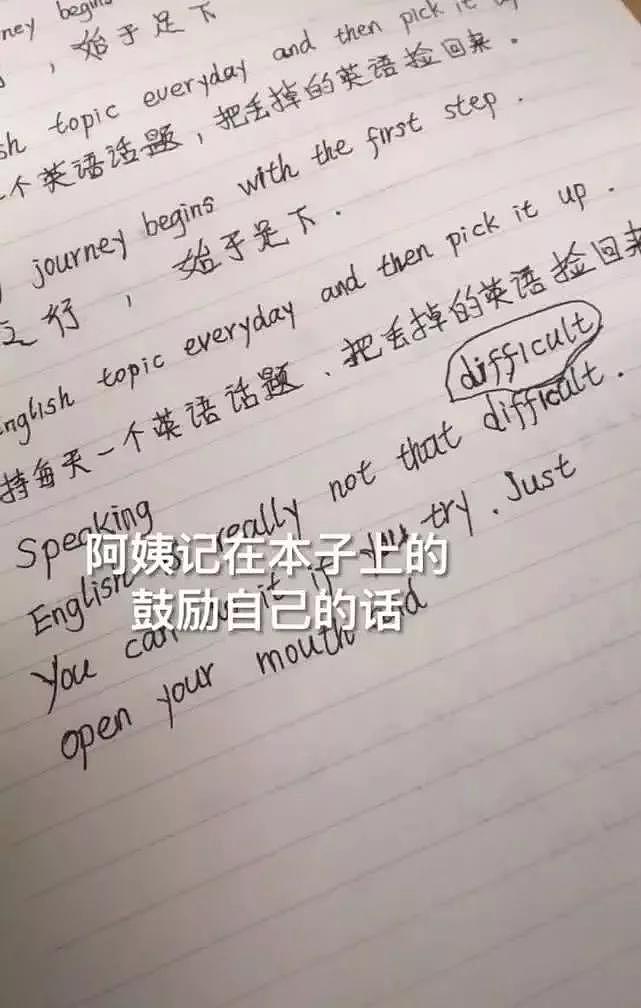 ney begins
始于足下
sh topic everyday and then pick it up
个英语话题，把丢掉的英语捡回来.
journey begins with the first step.
之行，始于足下.
English topic everyday and then pick it up.
持每天一个英语话题、把丢掉的英语捡回来
difficult
Speaking
English is really not that difficult.
You can do it if you try. Just
open your mouth and
阿姨记在本子上的
鼓励自己的话